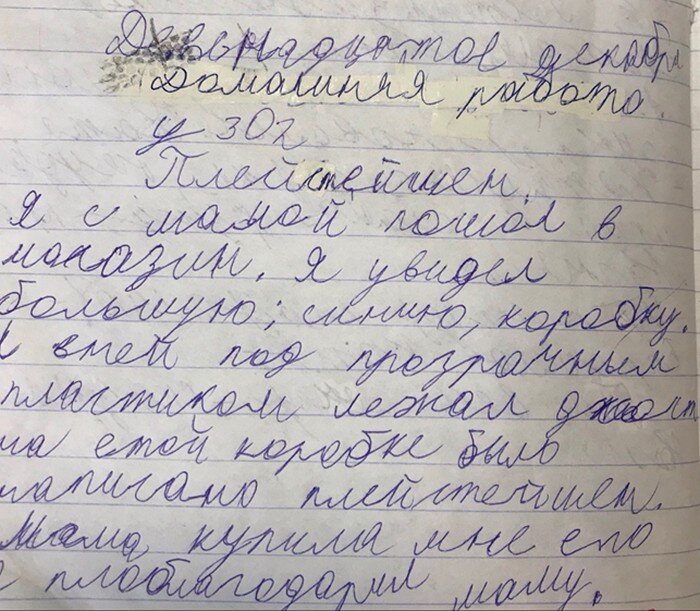 Двенадцатое декабря.
Домашняя работа.
у 302
Плейстейшен.
Я с мамой пошол в
магазин. Я увидел
большую, синию, коробку.
вней под прозрачным
пластиком лежал
на етой коробке было
написано плейстейшен.
Мама купила мне его
поблагодарил маму.